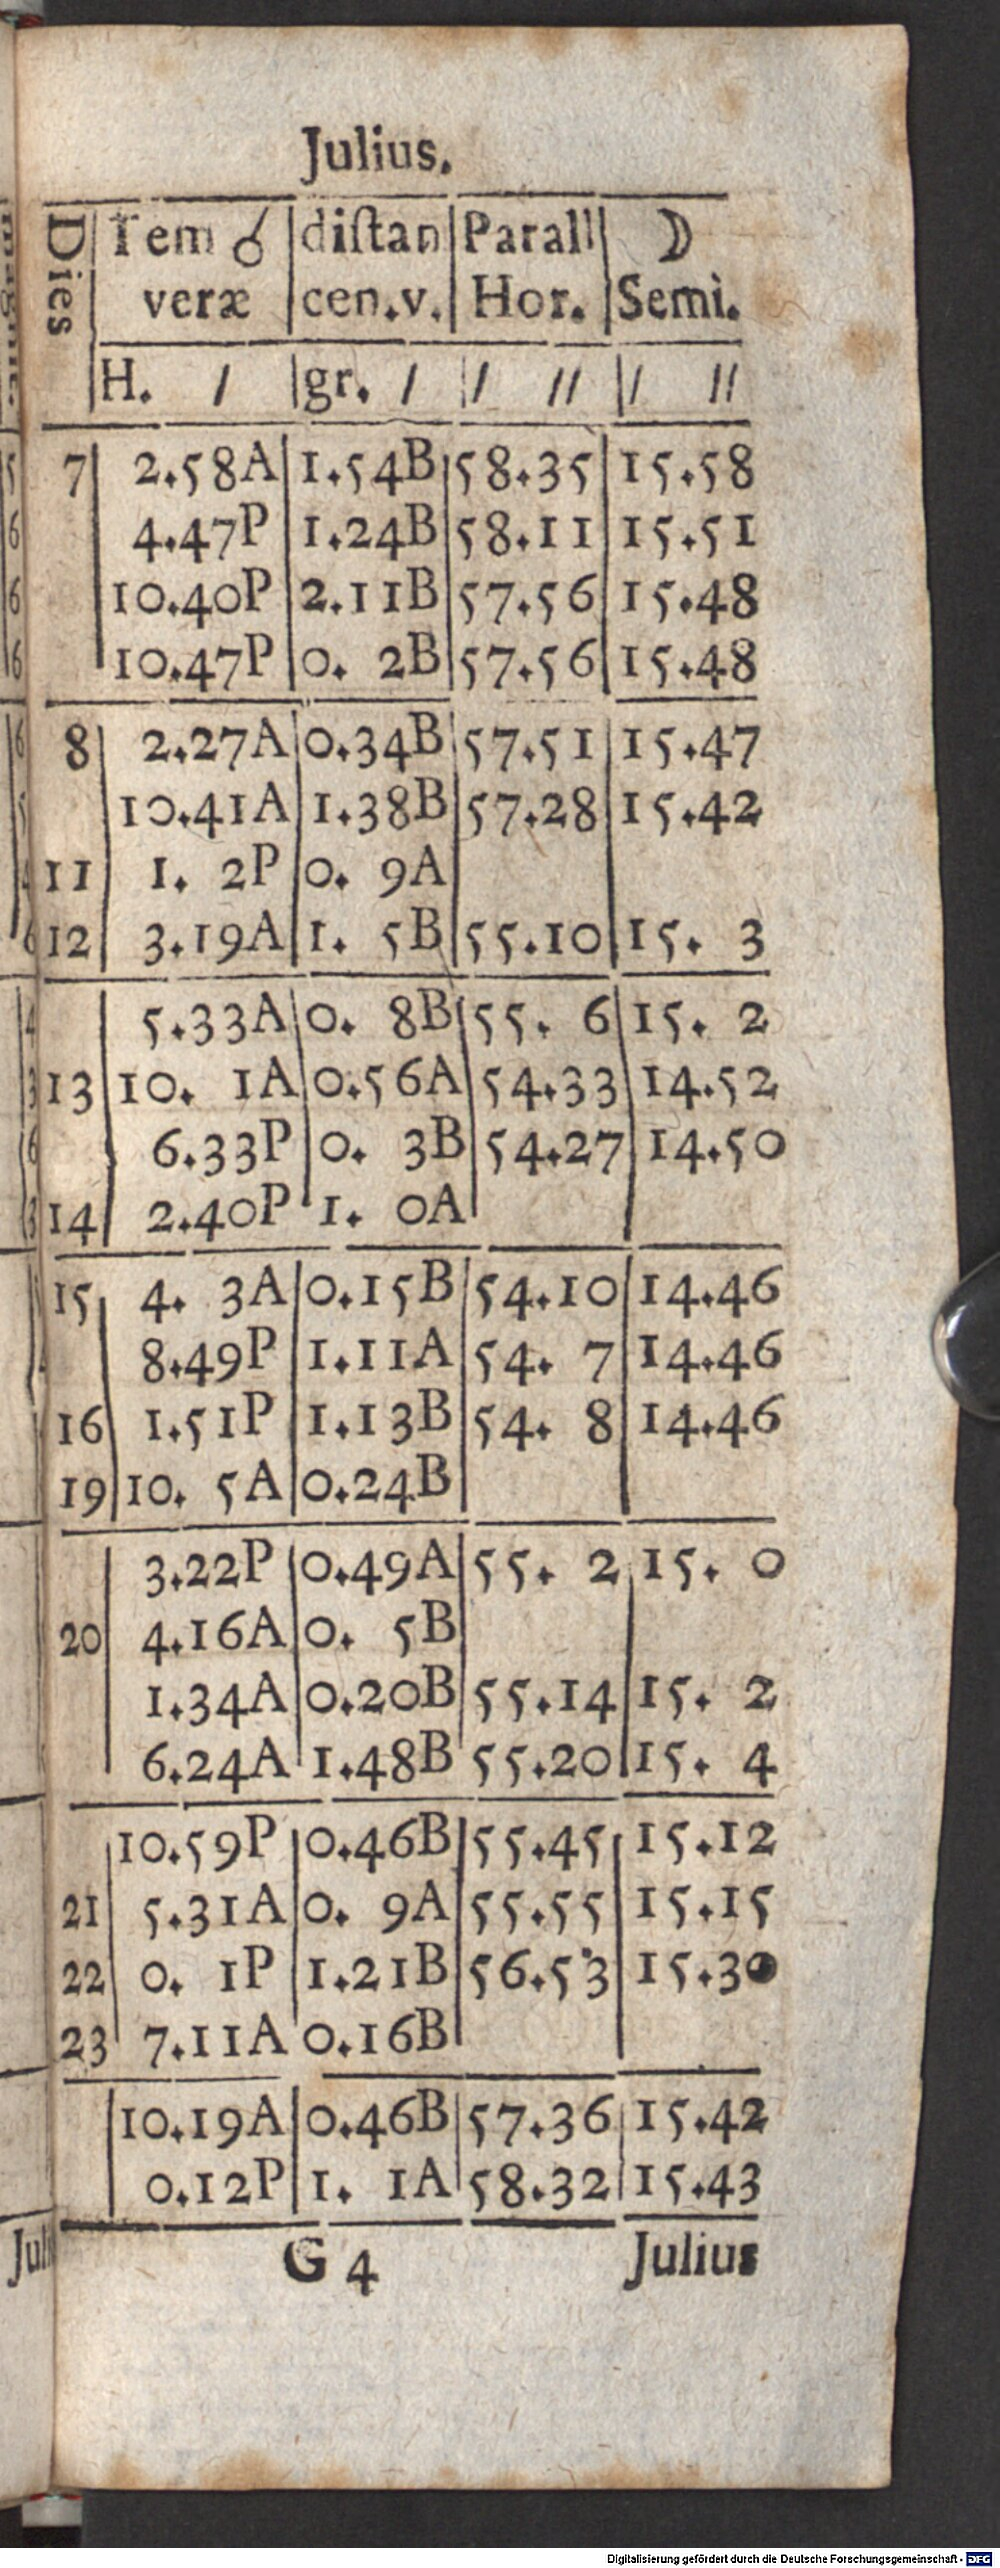 Julius.
Dies | Tem ☌ | diſtan | Parall | ☽
veræ | cen.v. | Hor. | Semi.
H. / | gr. / | / // | / //
7 | 2.58A | 1.54B | 58.35 | 15.58
4.47P | 1.24B | 58.11 | 15.51
10.40P | 2.11B | 57.56 | 15.48
10.47P | 0. 2B | 57.56 | 15.48
8 | 2.27A | 0.34B | 57.51 | 15.47
10.41A | 1.38B | 57.28 | 15.42
11 | 1. 2P | 0. 9A
12 | 3.19A | 1. 5B | 55.10 | 15. 3
5.33A | 0. 8B | 55. 6 | 15. 2
13 | 10. 1A | 0.56A | 54.33 | 14.52
6.33P | 0. 3B | 54.27 | 14.50
14 | 2.40P | 1. 0A
15 | 4. 3A | 0.15B | 54.10 | 14.46
8.49P | 1.11A | 54. 7 | 14.46
16 | 1.51P | 1.13B | 54. 8 | 14.46
19 | 10. 5A | 0.24B
3.22P | 0.49A | 55. 2 | 15. 0
20 | 4.16A | 0. 5B
1.34A | 0.20B | 55.14 | 15. 2
6.24A | 1.48B | 55.20 | 15. 4
10.59P | 0.46B | 55.45 | 15.12
21 | 5.31A | 0. 9A | 55.55 | 15.15
22 | 0. 1P | 1.21B | 56.53 | 15.30
23 | 7.11A | 0.16B
10.19A | 0.46B | 57.36 | 15.42
0.12P | 1. 1A | 58.32 | 15.43
G 4 Julius
Digitalisierung gefördert durch die Deutsche Forschungsgemeinschaft - DFG